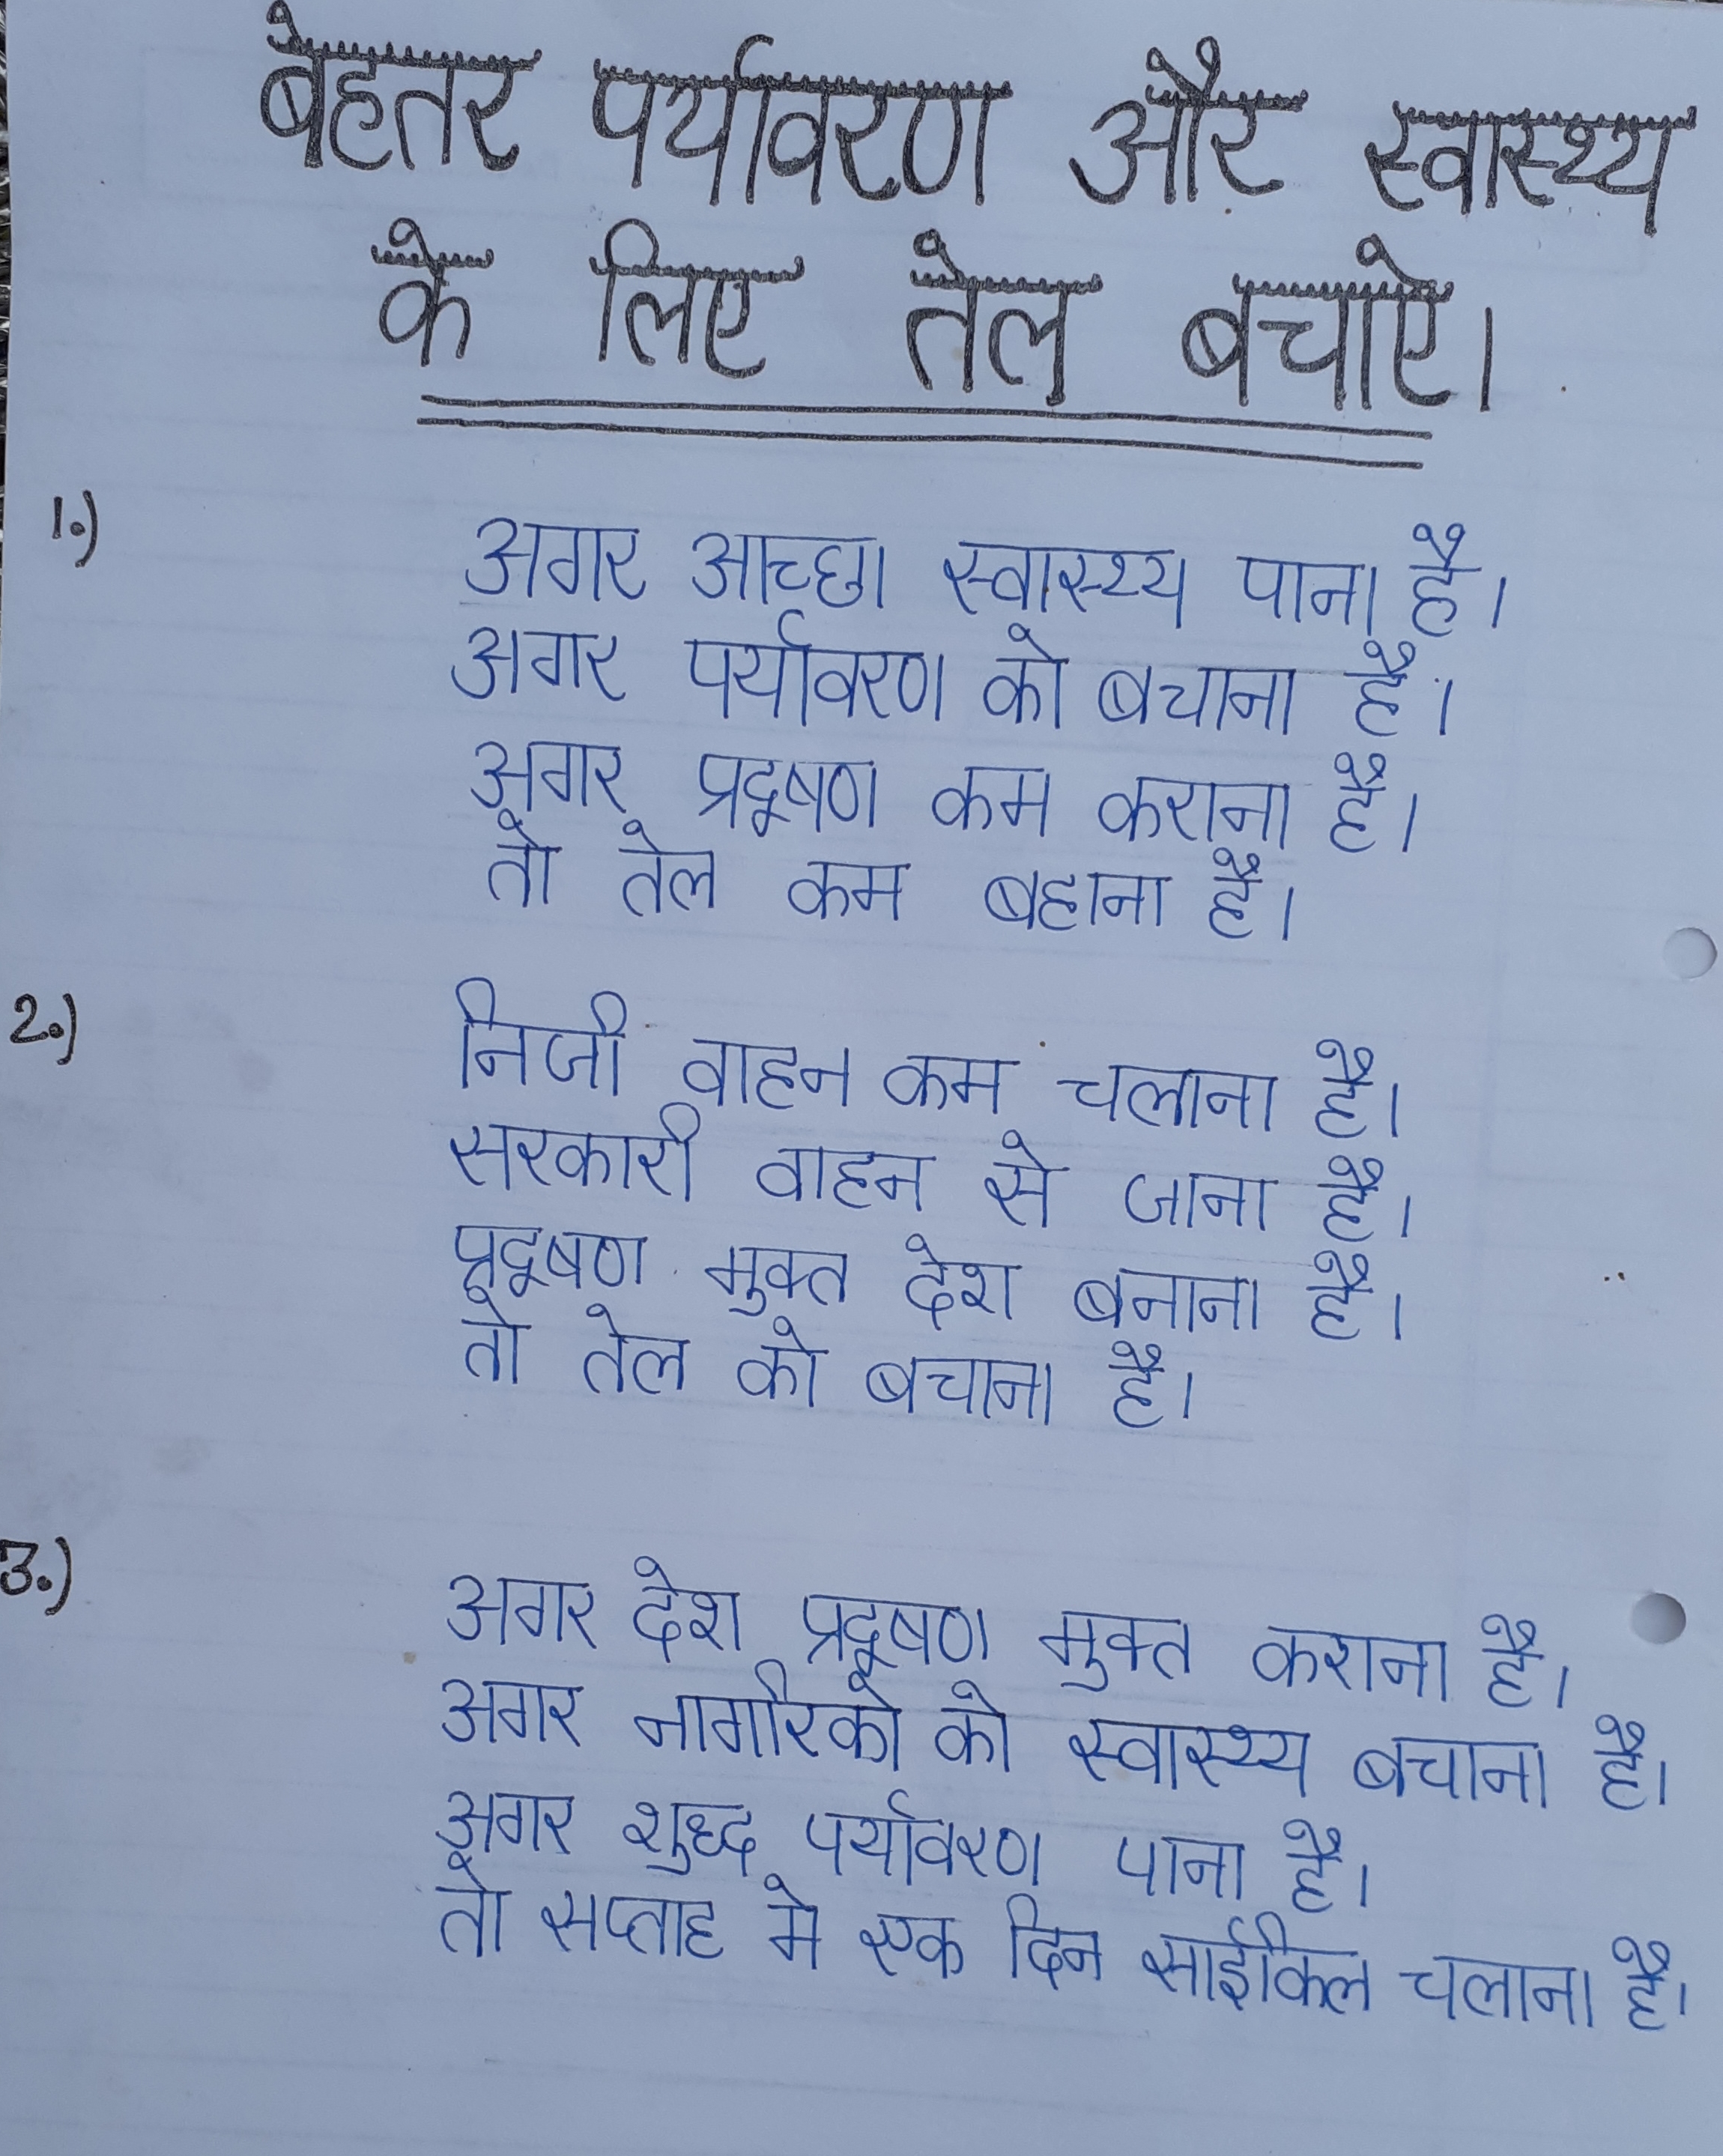 बेहतर पर्यावरण और स्वास्थ्य
के लिए तेल बचाऐ।
1.)
अगर आच्छा स्वास्थ्य पाना है।
अगर पर्यावरण को बचाना है।
अगर प्रदूषण कम कराना है।
तो तेल कम बहाना है।
2.)
निजी वाहन कम चलाना है।
सरकारी वाहन से जाना है।
प्रदूषण मुक्त देश बनाना है।
तो तेल को बचाना है।
3.)
अगर देश प्रदूषण मुक्त कराना है।
अगर नागरिको को स्वास्थ्य बचाना है।
अगर शुध्द पर्यावरण पाना है।
तो सप्ताह मे एक दिन साईकिल चलाना है।